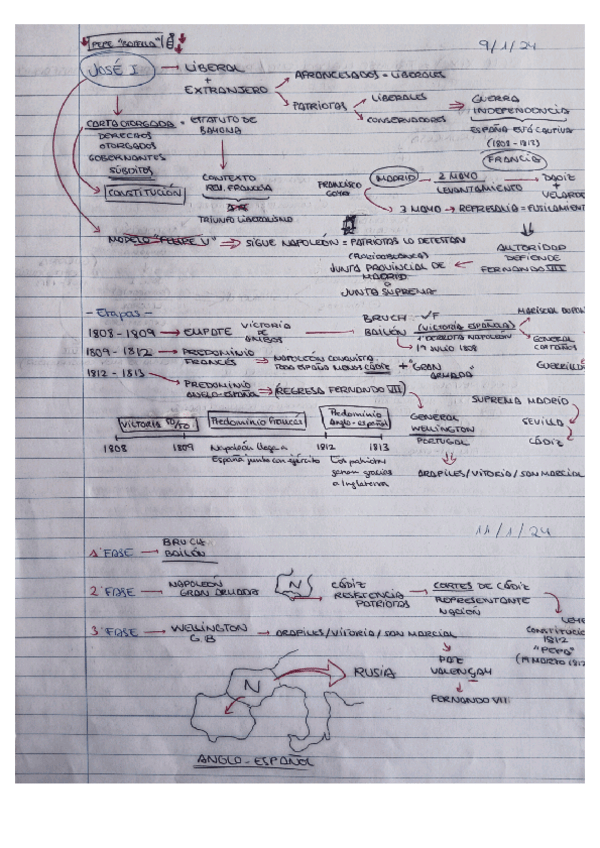 PEPE "BOTELLA"
9/1/24
JOSÉ I → LIBERAL
+
EXTRANJERO
AFRANCESADOS = LIBERALES
PATRIOTAS
LIBERALES
CONSERVADORES
GUERRA
INDEPENDENCIA
ESPAÑA ESTÁ CAUTIVA
(1808 - 1813)
FRANCIA
CARTA OTORGADA = ESTATUTO DE
BAYONA
DERECHOS
OTORGADOS
GOBERNANTES
SÚBDITOS
CONSTITUCIÓN
CONTEXTO
REV. FRANCESA
TRIUNFO LIBERALISMO
FRANCISCO
GOYA
MADRID
2 MAYO
LEVANTAMIENTO
DAOIZ
+
VELARDE
3 MAYO → REPRESALIA = FUSILAMIENT
MODELO "FELIPE V" ⇒ SIGUE NAPOLEÓN = PATRIOTAS LO DETESTAN
AUTORIDAD
DEFIENDE
FERNANDO VII
JUNTA PROVINCIAL DE
MADRID
o
JUNTA SUPREMA
- Etapas -
1808 - 1809 → EMPATE VICTORIA
DE
AMBOS
BRUCH
BAILÓN
(VICTORIA ESPAÑOLA)
1ª DERROTA NAPOLEÓN
19 JULIO 1808
GENERAL
CASTAÑOS
1809 - 1812 → PREDOMINIO
FRANCÉS
NAPOLEÓN CONQUISTA
TODA ESPAÑA MENOS CÁDIZ + "GRAN
ARMADA"
GUERRILL
1812 - 1813
PREDOMINIO
ANGLO-ESPAÑOL ⇒ REGRESA FERNANDO VII
SUPREMA MADRID
SEVILLA
CÁDIZ
GENERAL
WELLINGTON
PORTUGAL
ARAPILES/VITORIA/SAN MARCIAL
Predominio francés
Predominio
Anglo-español
1808
1809
1812
1813
Napoleón llega a
España junto con ejército
Los patriotas
ganan gracias
a Inglaterra
11/1/24
1ª FASE → BRUCH
BAILÓN
2ª FASE → NAPOLEÓN
GRAN ARMADA
N
CÁDIZ
RESISTENCIA
PATRIOTAS
CORTES DE CÁDIZ
REPRESENTANTE
NACIÓN
LEYE
CONSTITUCIÓ
1812
"PEPA"
(19 MARZO 1812
3ª FASE → WELLINGTON
G.B
ARAPILES/VITORIA/SAN MARCIAL
PAZ
VALENÇAY
FERNANDO VII
N
RUSIA
ANGLO-ESPAÑOL